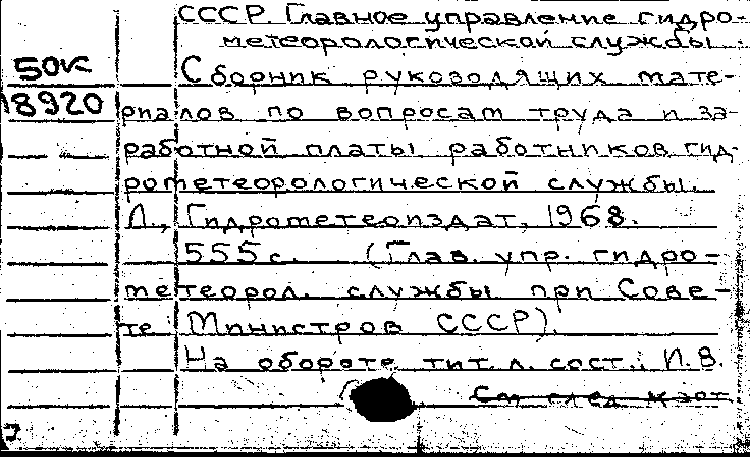 СССР. Главное управление гидро-
метеорологической службы.
50к Сборник руководящих мате-
18920 риалов по вопросам труда и за-
работной платы работников гид-
рометеорологической службы.
Л., Гидрометеоиздат, 1968.
555 с. (Глав. упр. гидро-
метеорол. службы при Сове-
те Министров СССР).
На обороте тит. л. сост.: И.В.
См след карт